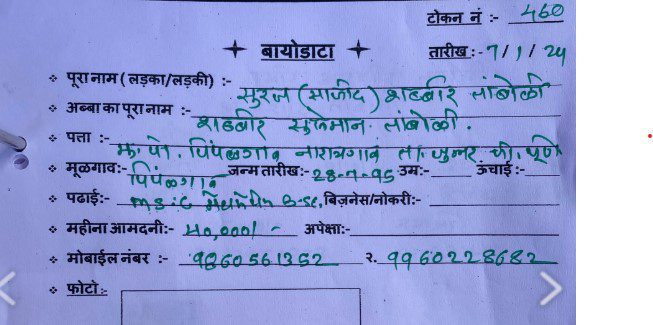 टोकन नं :- 460
बायोडाटा
तारीख :- 7/1/24
पूरा नाम ( लड़का/लड़की) :- सुरज (साजीद) शब्बीर तांबोळी
अब्बा का पूरा नाम :- शब्बीर सुलेमान तांबोळी.
पत्ता :- मु. पो. पिंपळगाव नारायणगाव ता. जुन्नर जी. पूणे
मूळगाव:- पिंपळगाव जन्म तारीख:- 28-7-95 उम्र:- ऊंचाई :-
पढाई:- B.sc. बिज़नेस/नोकरी:-
महीना आमदनी:- 40,000/- अपेक्षा:-
मोबाईल नंबर :- 9860561352 २. 9960228682
फोटो:-